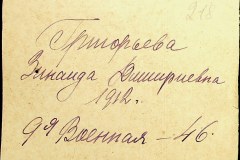 213
Григорьева
Зинаида Дмитриевна
1912 г.
9я Военная – 46.